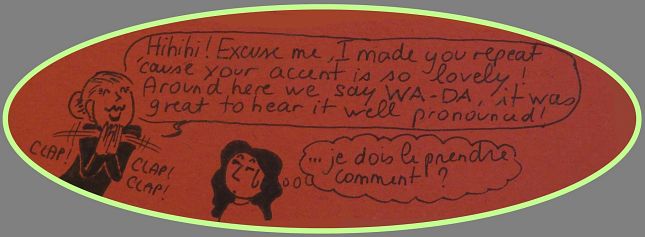 Hihihi! Excuse me, I made you repeat
'cause your accent is so lovely!
Around here we say WA-DA, it was
great to hear it well pronounced!
CLAP!
CLAP!
CLAP!
...je dois le prendre
comment?